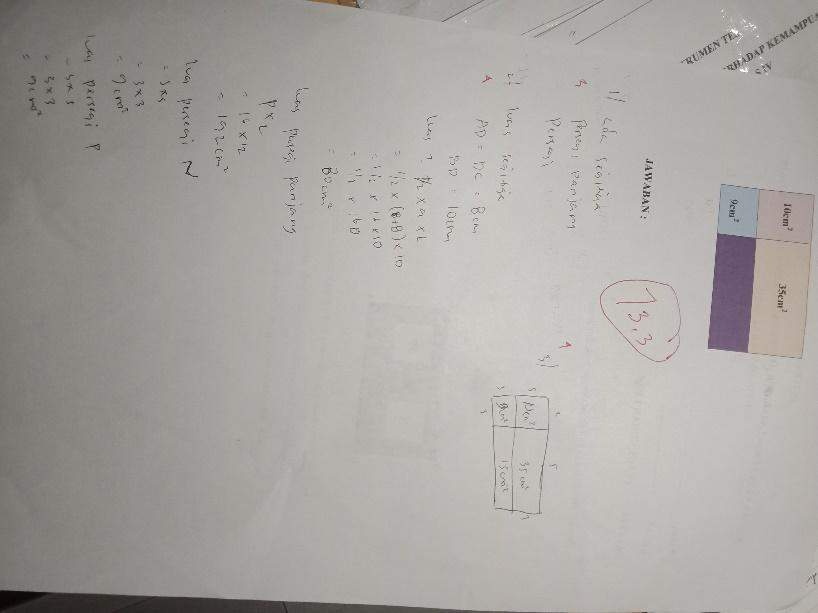 RUMEN TE
RHADAP KEMAMPUA
IV
10cm²
35cm²
9cm²
JAWABAN :
73,3
1/ ada segitiga
3
Persegi panjang
Persegi
2/ Luas segitiga
4
AD = DC = 8cm
BD = 10cm
Luas = 1/2 x a x t
= 1/2 x (8+8) x 10
= 1/2 x 16 x 10
= 1/2 x 160
= 80cm²
Luas persegi panjang
P x L
= 16 x 12
= 192 cm²
Luas persegi N
= s x s
= 3 x 3
= 9 cm²
Luas persegi P
= s x s
= 3 x 3
= 9 cm²
4
3/
5
35cm²
9cm²
15cm²